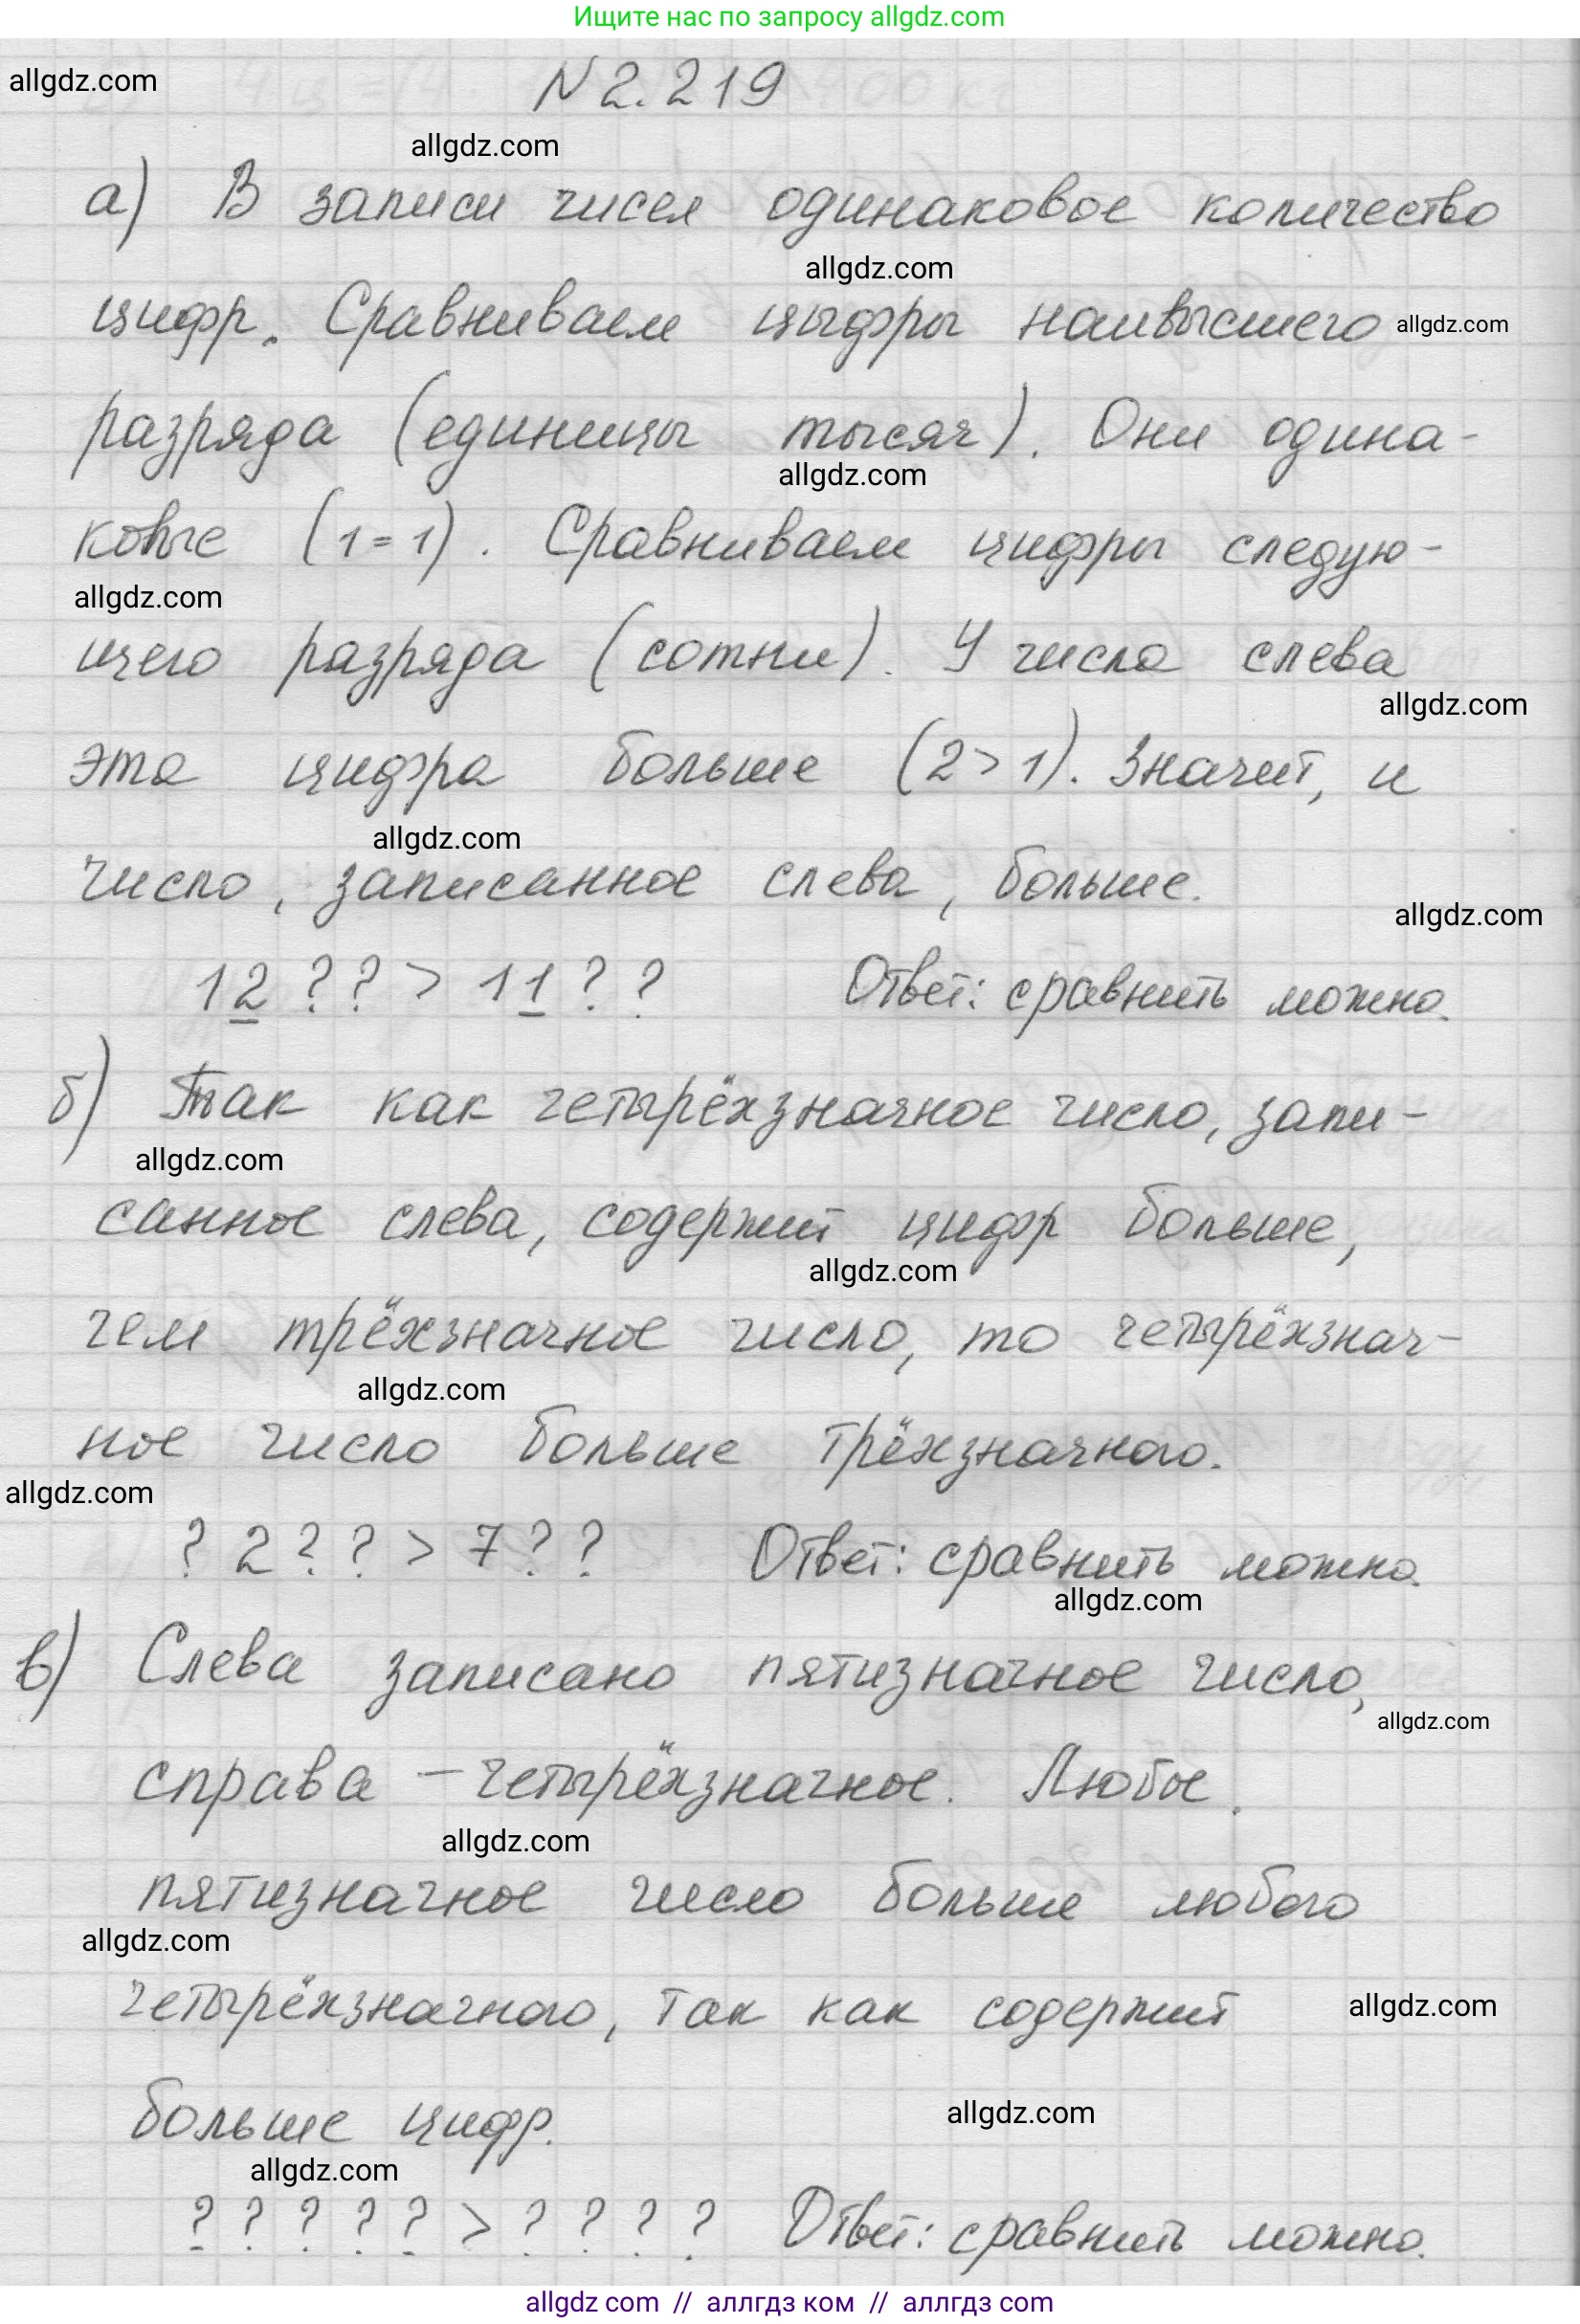 Ищите нас по запросу allgdz.com
allgdz.com
N 2.219
allgdz.com
а) В записи чисел одинаковое количество
allgdz.com
цифр. Сравниваем цыфры наивысшего allgdz.com
разряда (единицы тысяч). Они одина-
allgdz.com
ковые (1=1). Сравниваем цифры следую-
allgdz.com
щего разряда (сотни). У числа слева
allgdz.com
эта цифра больше (2>1). Значит, и
allgdz.com
число, записанное слева, больше.
allgdz.com
12??>11?? Ответ: сравнить можно.
б) Так как четырёхзначное число, запи-
allgdz.com
санное слева, содержит цифр больше,
allgdz.com
чем трёхзначное число, то четырёхзнач-
allgdz.com
ное число больше трёхзначного.
allgdz.com
?2??>7?? Ответ: сравнить можно.
allgdz.com
в) Слева записано пятизначное число,
allgdz.com
справа – четырёхзначное. Любое
allgdz.com
пятизначное число больше любого
allgdz.com
четырёхзначного, так как содержит
allgdz.com
больше цифр.
allgdz.com
allgdz.com
?????>???? Ответ: сравнить можно.
allgdz com // аллгдз ком // аллгдз com